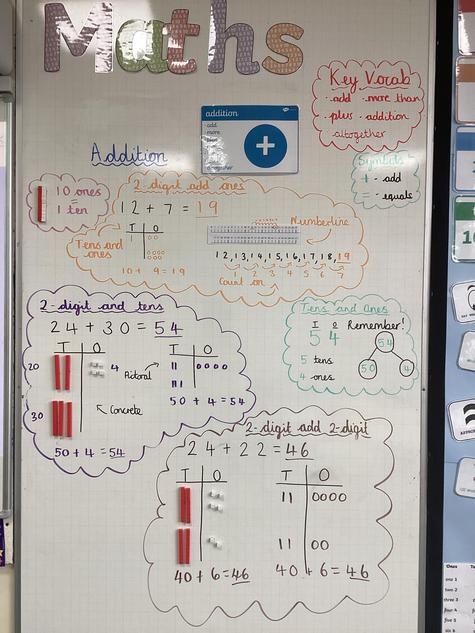 Maths
Key Vocab
· add · more than
· plus · addition
altogether
addition
add
more
+
together
Addition
Symbols
+ - add
= - equals
10 ones
=
1 ten
2-digit add ones
12 + 7 = 19
T O
Tens and
ones
10 + 9 = 19
Numberline
12, 13, 14, 15, 16, 17, 18, 19
1 2 3 4 5 6 7
Count on
2-digit and tens
24 + 30 = 54
T O
20
4
30
Concrete
50 + 4 = 54
T O
Pictoral
II OOOO
III
50 + 4 = 54
Tens and Ones
T O Remember!
5 4
5 tens
4 ones
54
50 4
2-digit add 2-digit
24 + 22 = 46
T O
40 + 6 = 46
T O
II OOOO
II OO
40 + 6 = 46
Ones Tens
one 1
two 2
three 3
four 4
five 5
six 6